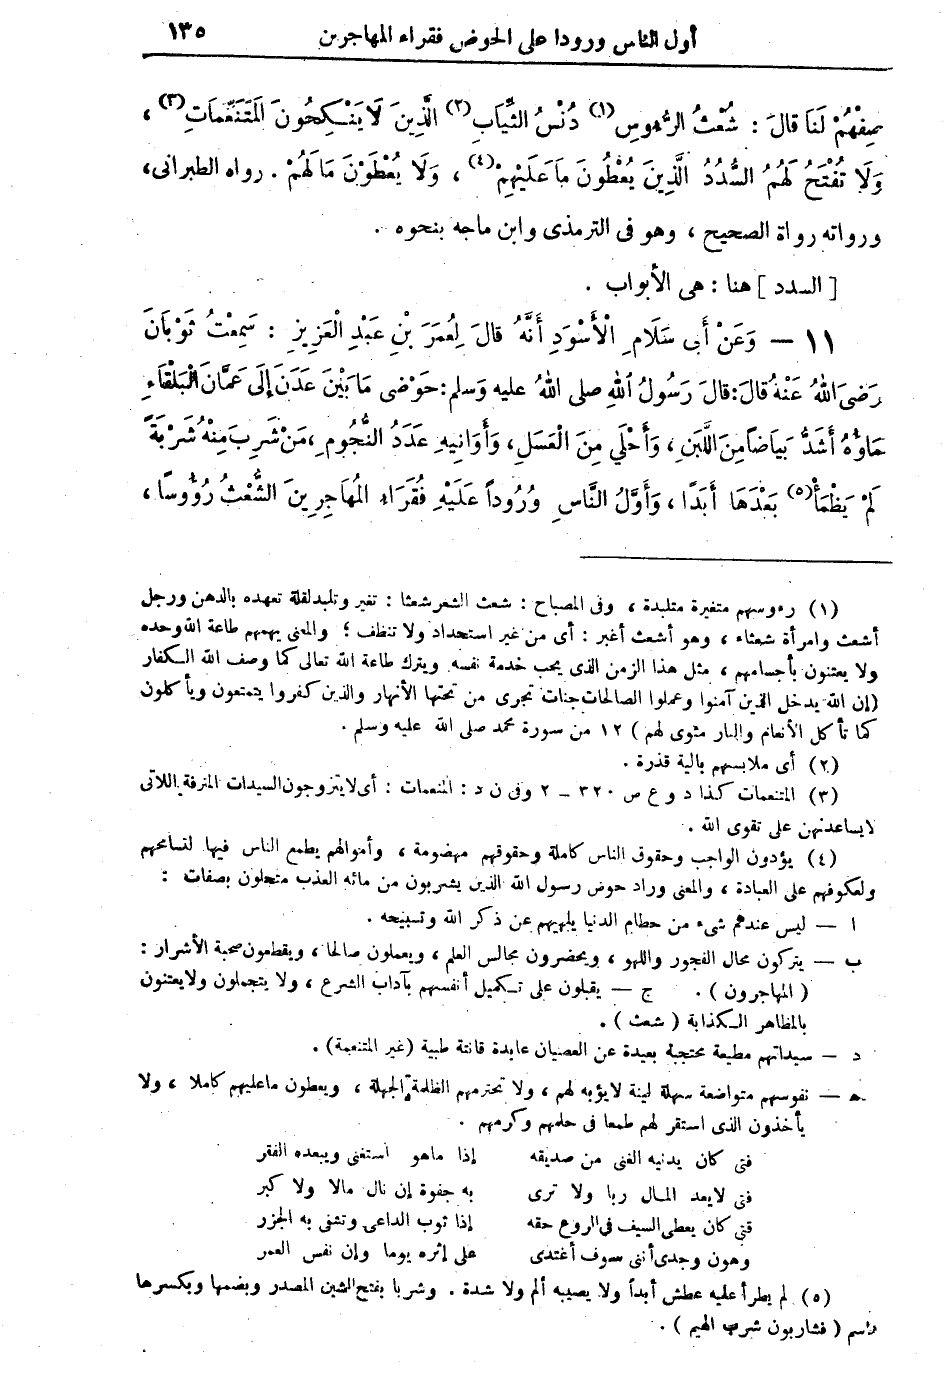 أول الناس ورودا على الحوض فقراء المهاجرين ١٣٥
صِفْهُمْ لَنَا قَالَ : شُعْثُ الرُّءُوسِ (١) دُنْسُ الثِّيَابِ (٢) الَّذِينَ لَا يَنْكِحُونَ الْمُتَنَعِّمَاتِ (٣) ،
وَلَا تُفْتَحُ لَهُمُ السُّدَدُ الَّذِينَ يُعْطُونَ مَا عَلَيْهِمْ (٤) ، وَلَا يُعْطَوْنَ مَا لَهُمْ . رواه الطبرانى ،
ورواته رواة الصحيح ، وهو فى الترمذى وابن ماجه بنحوه .
[ السدد ] هنا : هى الأبواب .
١١ — وَعَنْ أَبِى سَلَامِ الْأَسْوَدِ أَنَّهُ قَالَ لِعُمَرَ بْنِ عَبْدِ الْعَزِيزِ : سَمِعْتُ ثَوْبَانَ
رَضِىَ اللهُ عَنْهُ قَالَ : قَالَ رَسُولُ اللهِ صلى اللهُ عليه وَسلم : حَوْضِى مَا بَيْنَ عَدَنَ إِلَى عَمَّانَ الْبَلْقَاءِ
مَاؤُهُ أَشَدُّ بَيَاضاً مِنَ اللَّبَنِ ، وَأَحْلَي مِنَ الْعَسَلِ ، وَأَوَانِيهِ عَدَدُ النُّجُومِ ، مَنْ شَرِبَ مِنْهُ شَرْبَةً
لَمْ يَظْمَأْ (٥) بَعْدَهَا أَبَدًا ، وَأَوَّلُ النَّاسِ وُرُوداً عَلَيْهِ فُقَرَاءُ الْمُهَاجِرِينَ الشُّعْثُ رُؤُوسًا ،
(١) رءوسهم متغيرة متلبدة ، وفى المصباح : شعث الشعر شعثا : تغير وتلبد لقلة تعهده بالدهن ورجل
أشعث وامرأة شعثاء ، وهو أشعث أغبر : أى من غير استحداد ولا تنظف ؛ والمعنى يهمهم طاعة الله وحده
ولا يعتنون بأجسامهم ، مثل هذا الزمن الذى يحب خدمة نفسه ويترك طاعة الله تعالى كما وصف الله الكفار
(إن الله يدخل الذين آمنوا وعملوا الصالحات جنات تجرى من تحتها الأنهار والذين كفروا يتمتعون ويأكلون
كما تأكل الأنعام والنار مثوى لهم ) ١٢ من سورة محمد صلى الله عليه وسلم .
(٢) أى ملابسهم بالية قذرة .
(٣) المتنعمات كذا د و ع ص ٣٢٠ — ٢ وفى ن د : المنعمات : أى لا يتزوجون السيدات المترفة اللاتى
لا يساعدنهن على تقوى الله .
(٤) يؤدون الواجب وحقوق الناس كاملة وحقوقهم مهضومة ، وأموالهم يطمع الناس فيها لتسامحهم
ولعكوفهم على العبادة ، والمعنى وراد حوض رسول الله الذين يشربون من مائه العذب متحلون بصفات :
ا — ليس عندهم شىء من حطام الدنيا يلهيهم عن ذكر الله وتسبيحه .
ب — يتركون محال الفجور واللهو ، ويحضرون مجالس العلم ، ويعملون صالحا ، ويقطعون صحبة الأشرار :
( المهاجرون ) . ج — يقبلون على تكميل أنفسهم بآداب الشرع ، ولا يتجملون ولا يعتنون
بالمظاهر الكذابة ( شعث ) .
د — سيداتهم مطيعة محتجبة بعيدة عن العصيان عابدة قانتة طيبة (غير المتنعمة) .
هـ — نفوسهم متواضعة سهلة لينة لا يؤبه لهم ، ولا تحترمهم الظلمة الجهلة ، ويعطون ما عليهم كاملا ، ولا
يأخذون الذى استقر لهم طمعا فى حلمهم وكرمهم .
فتى كان يدنيه الغنى من صديقه إذا ما هو استغنى ويبعده الفقر
فتى لا يعد المال ربا ولا ترى به جفوة إن نال مالا ولا كبر
فتى كان يعطى السيف فى الروع حقه إذا ثوب الداعى وتشقى به الجزر
وهون وجدى أننى سوف أغتدى على إثره يوما وإن نفس العمر
(٥) لم يطرأ عليه عطش أبداً ولا يصيبه ألم ولا شدة . وشربا بفتح الشين المصدر وبضمها وبكسرها
اسم ( فشاربون شرب الهيم ) .